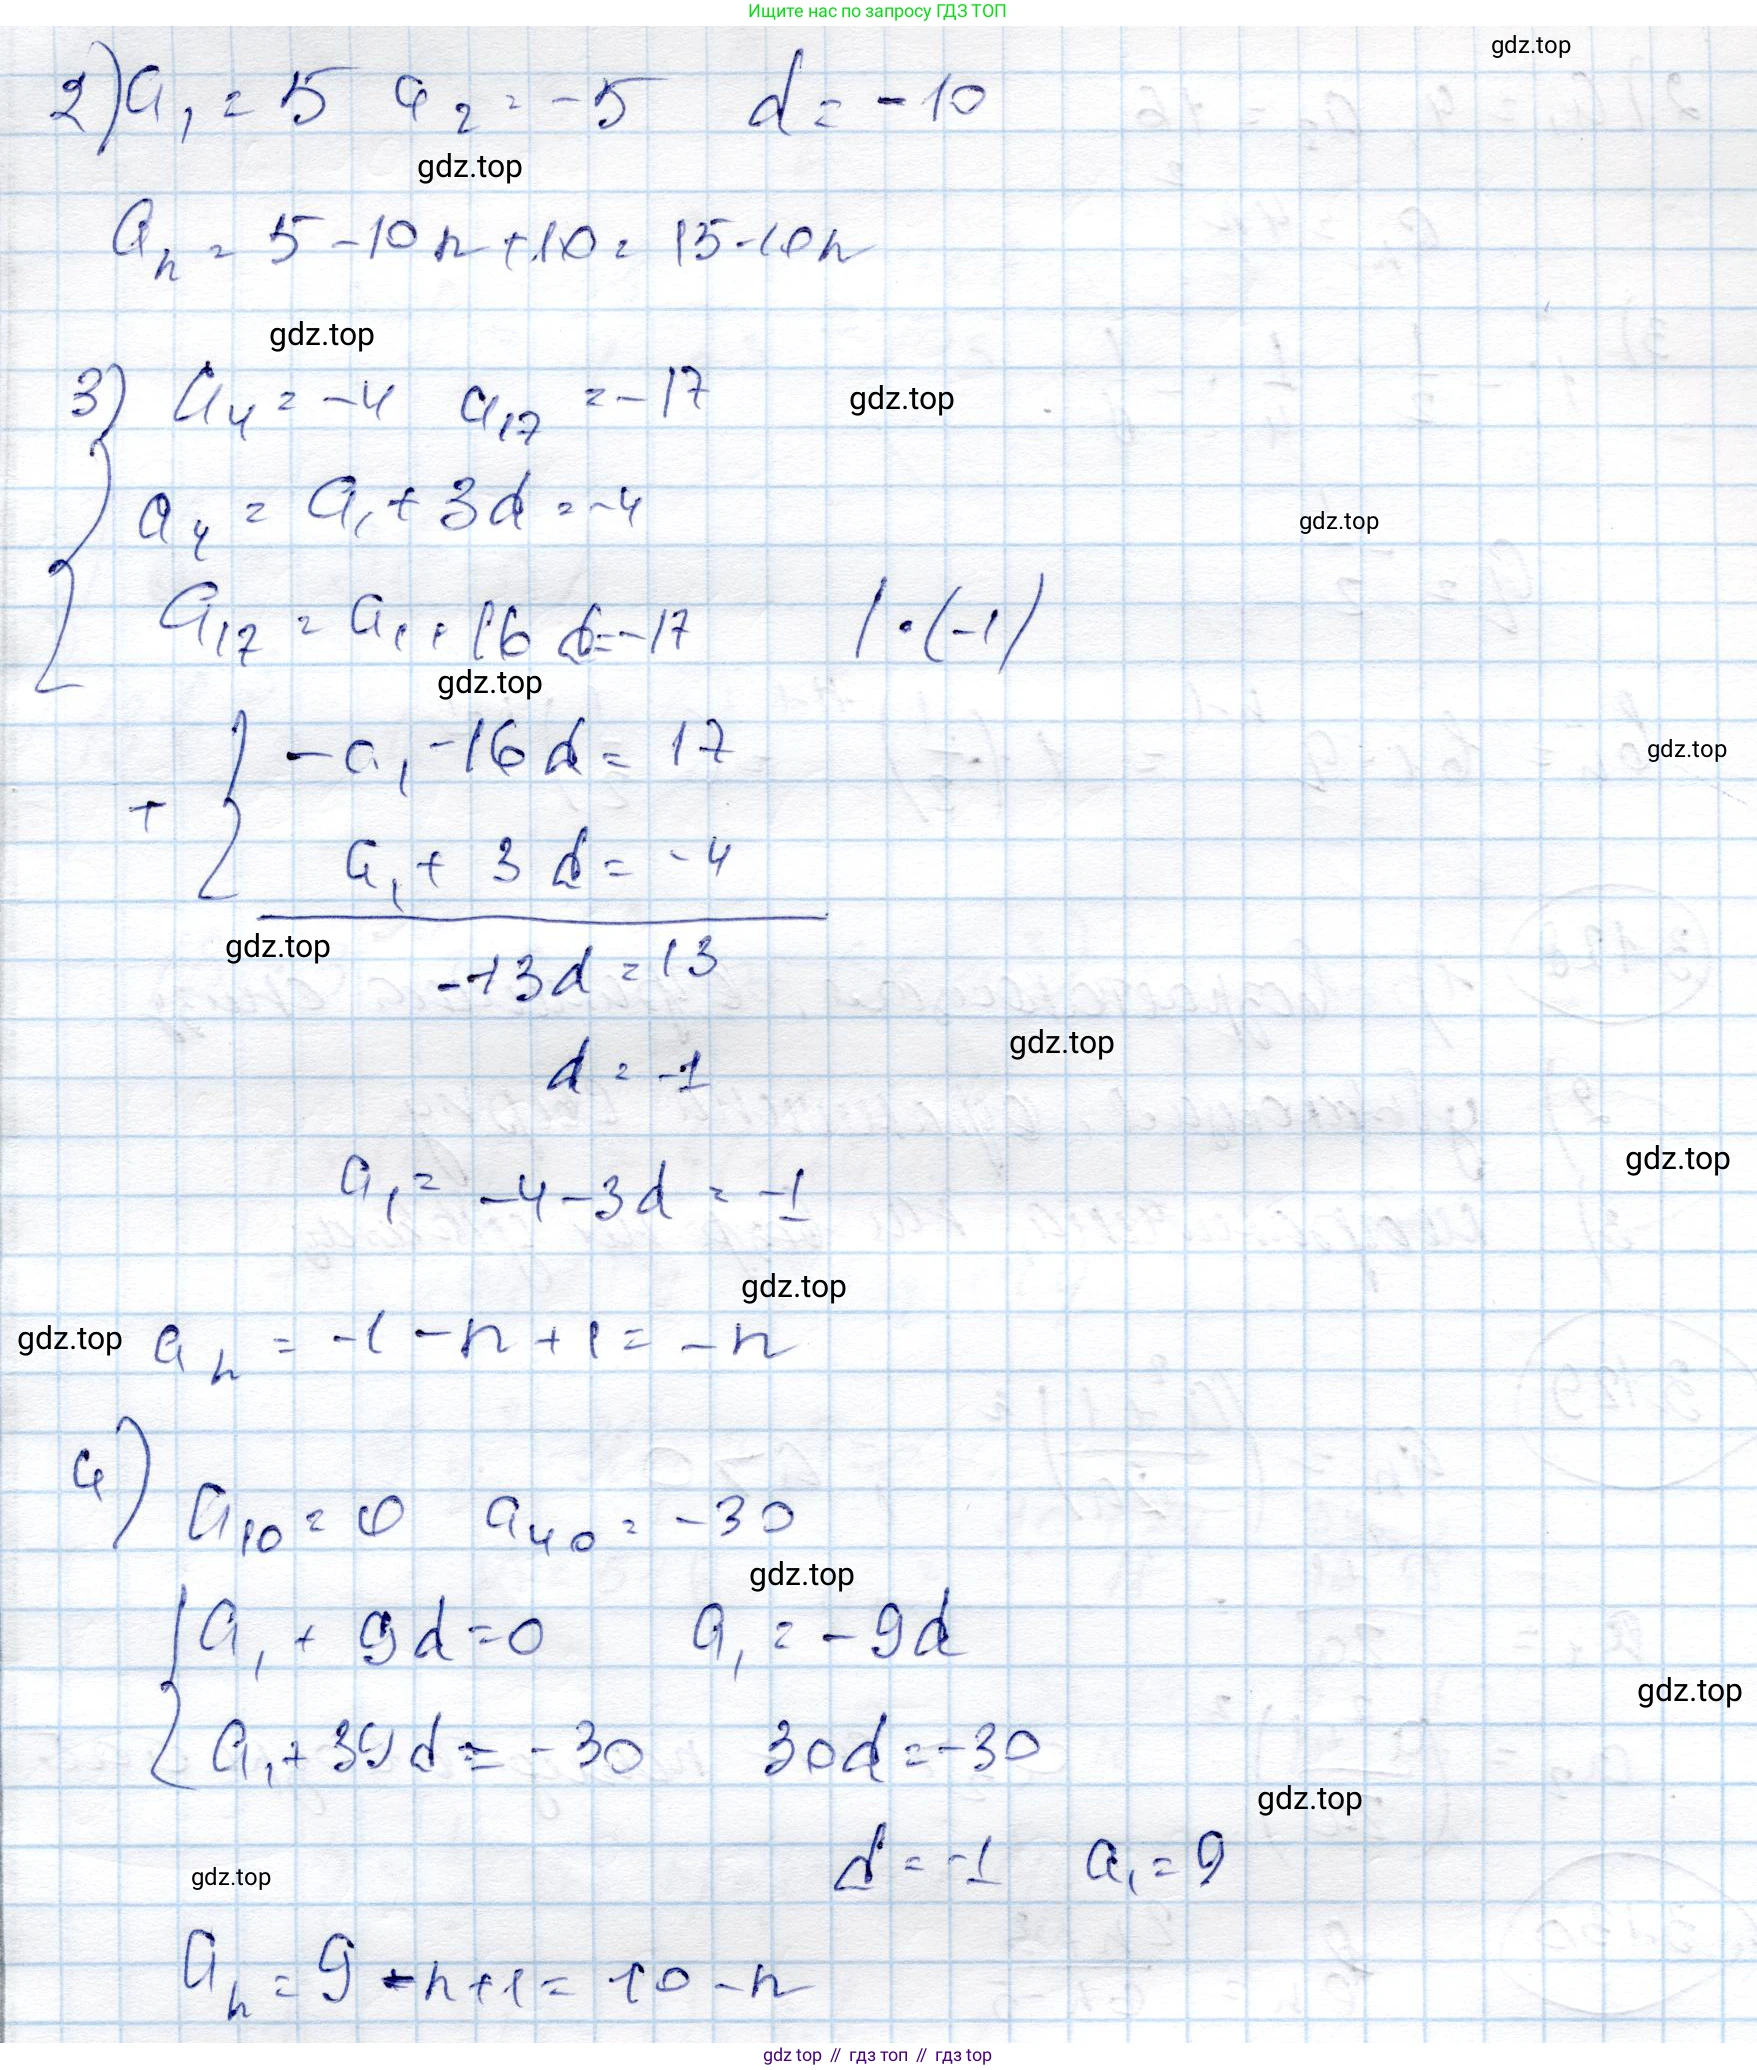 Ищите нас по запросу ГДЗ ТОП
gdz.top
2) a₁ = 5 a₂ = -5 d = -10
gdz.top
aₙ = 5 - 10n + 10 = 15 - 10n
gdz.top
3) a₄ = -4 a₁₇ = -17
gdz.top
a₄ = a₁ + 3d = -4
gdz.top
a₁₇ = a₁ + 16d = -17 | · (-1)
gdz.top
-a₁ - 16d = 17
gdz.top
+
a₁ + 3d = -4
gdz.top
-13d = 13
gdz.top
d = -1
gdz.top
a₁ = -4 - 3d = -1
gdz.top
gdz.top
aₙ = -1 - n + 1 = -n
4) a₁₀ = 0 a₄₀ = -30
gdz.top
a₁ + 9d = 0 a₁ = -9d
gdz.top
a₁ + 39d = -30 30d = -30
gdz.top
d = -1 a₁ = 9
gdz.top
aₙ = 9 - n + 1 = 10 - n
gdz.top // гдз топ // гдз top